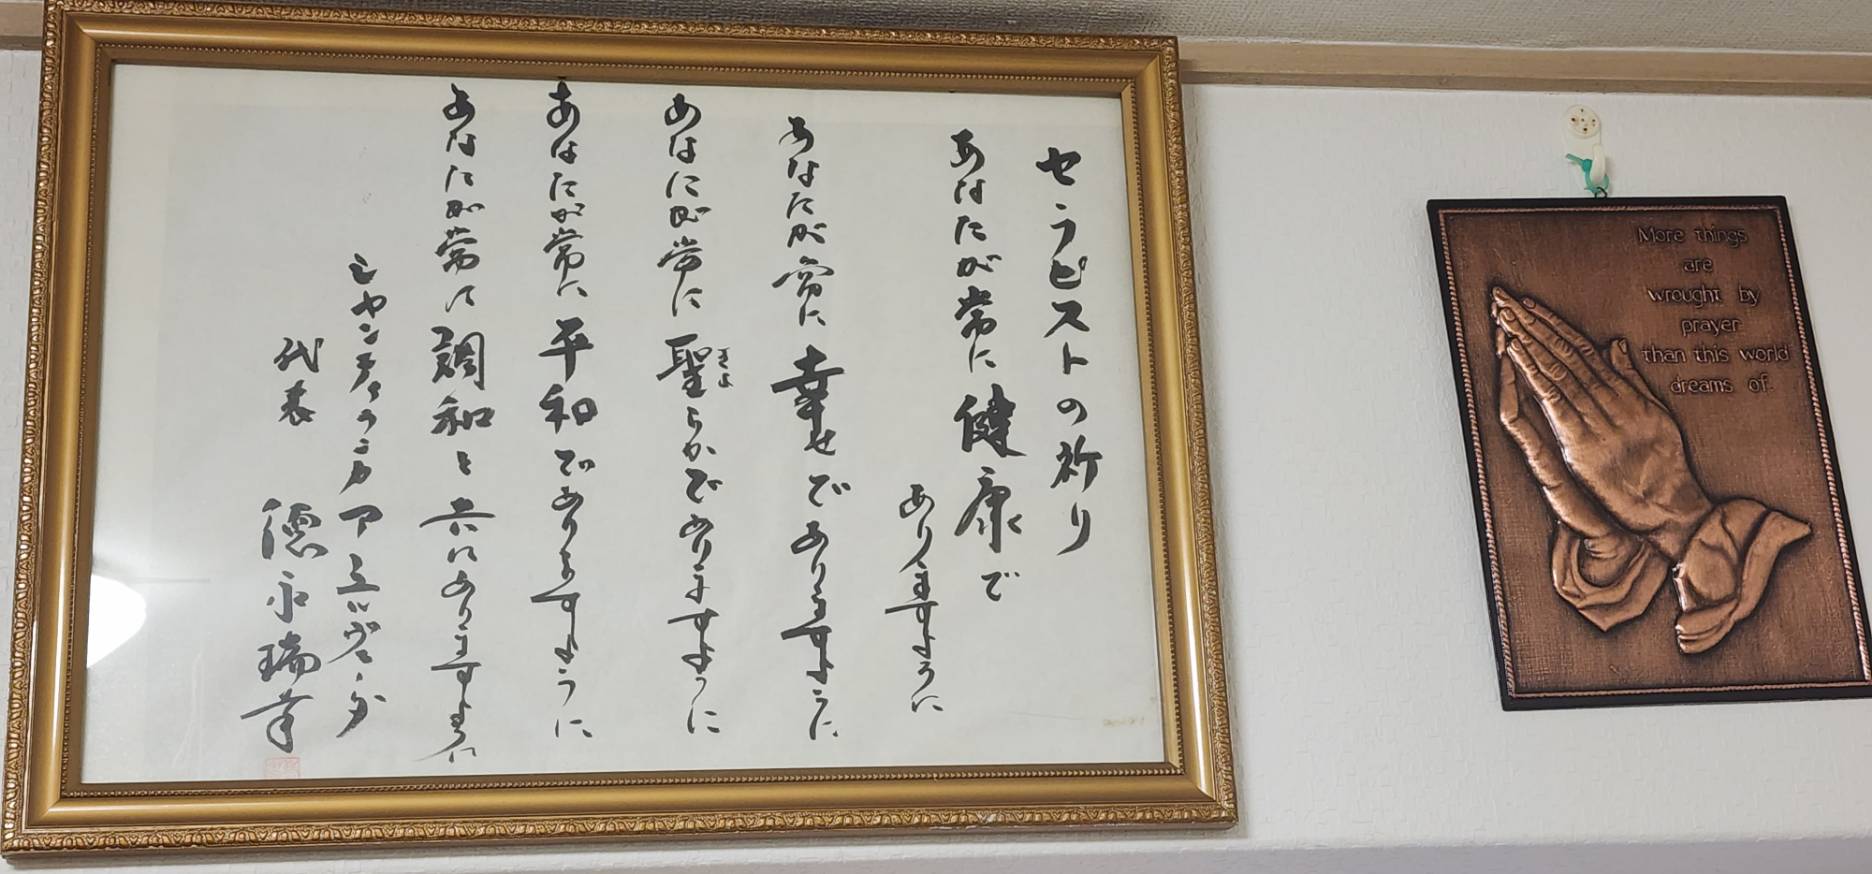 セラピストの祈り
あなたが常に健康で
ありますように
あなたが常に幸せでありますように
あなたが常に聖らかでありますように
きよ
あなたが常に平和でありますように
あなたが常に調和と共にありますように
シャンティランカ アーユルヴェーダ
代表 徳永瑞幸
More things
are
wrought by
prayer
than this world
dreams of.